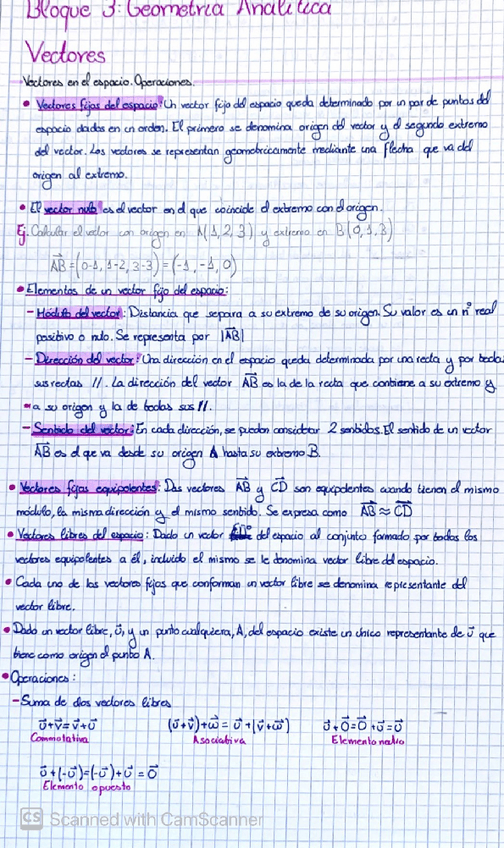 Bloque 3: Geometría Analítica
Vectores
Vectores en el espacio. Operaciones.
• Vectores fijos del espacio: Un vector fijo del espacio queda determinado por un par de puntos del
espacio dados en un orden. El primero se denomina origen del vector y el segundo extremo
del vector. Los vectores se representan geométricamente mediante una flecha que va del
origen al extremo.
• El vector nulo es el vector en el que coincide el extremo con el origen.
Ej: Calcular el vector con origen en A(1,2,3) y extremo en B(0,1,3)
AB=(0-1, 1-2, 3-3)=(-1,-1,0)
• Elementos de un vector fijo del espacio:
- Módulo del vector: Distancia que separa a su extremo de su origen. Su valor es un nº real
positivo o nulo. Se representa por |AB|
- Dirección del vector: Una dirección en el espacio queda determinada por una recta y por todas
sus rectas //. La dirección del vector AB es la de la recta que contiene a su extremo y
a su origen y la de todas sus //.
- Sentido del vector: En cada dirección, se pueden considerar 2 sentidos. El sentido de un vector
AB es el que va desde su origen A hasta su extremo B.
• Vectores fijos equipolentes: Dos vectores AB y CD son equipolentes cuando tienen el mismo
módulo, la misma dirección y el mismo sentido. Se expresa como AB ≈ CD
• Vectores libres del espacio: Dado un vector del espacio al conjunto formado por todos los
vectores equipolentes a él, incluido el mismo se le denomina vector libre del espacio.
• Cada uno de los vectores fijos que conforman un vector libre se denomina representante del
vector libre.
• Dado un vector libre, u, y un punto cualquiera, A, del espacio existe un único representante de u que
tiene como origen el punto A.
• Operaciones:
- Suma de dos vectores libres
u+v=v+u (u+v)+w=u+(v+w) u+0=0+u=u
Conmutativa Asociativa Elemento neutro
u+(-u)=(-u)+u=0
Elemento opuesto
CS Scanned with CamScanner